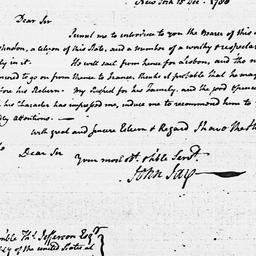 New York 18 Decr. 1786
Dear Sir
Permit me to introduce to you the Bearer of this
Johnston, a citizen of this State, and a member of a worthy & respectable
in it. He will sail from hence for Lisbon, and the
to go on from thence to France, thinks it probable that he may
before his Return. My Respect for his Family, and the good
his Character has impressed me, induce me to recommend him to
attentions. —
with great and sincere Esteem & Regard I have the
Dear Sir
your most obt. & hble Servt.
John Jay
Thos. Jefferson Esqr.
of the united States at